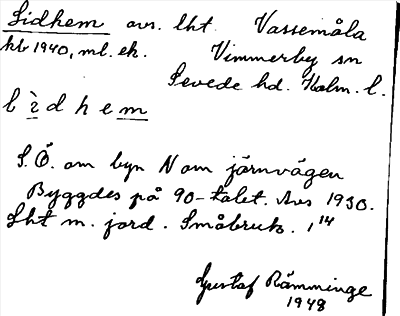 Lidhem avs. lht. Vassemåla
kb 1940, ml. ek. Vimmerby sn
Sevede hd. Kalm. l.
l ì d h e m
S. Ö. om byn N om järnvägen
Byggdes på 90-talet. Avs 1930.
Lht m. jord. Småbruk. 1 14
Gustaf Rämminge
1948